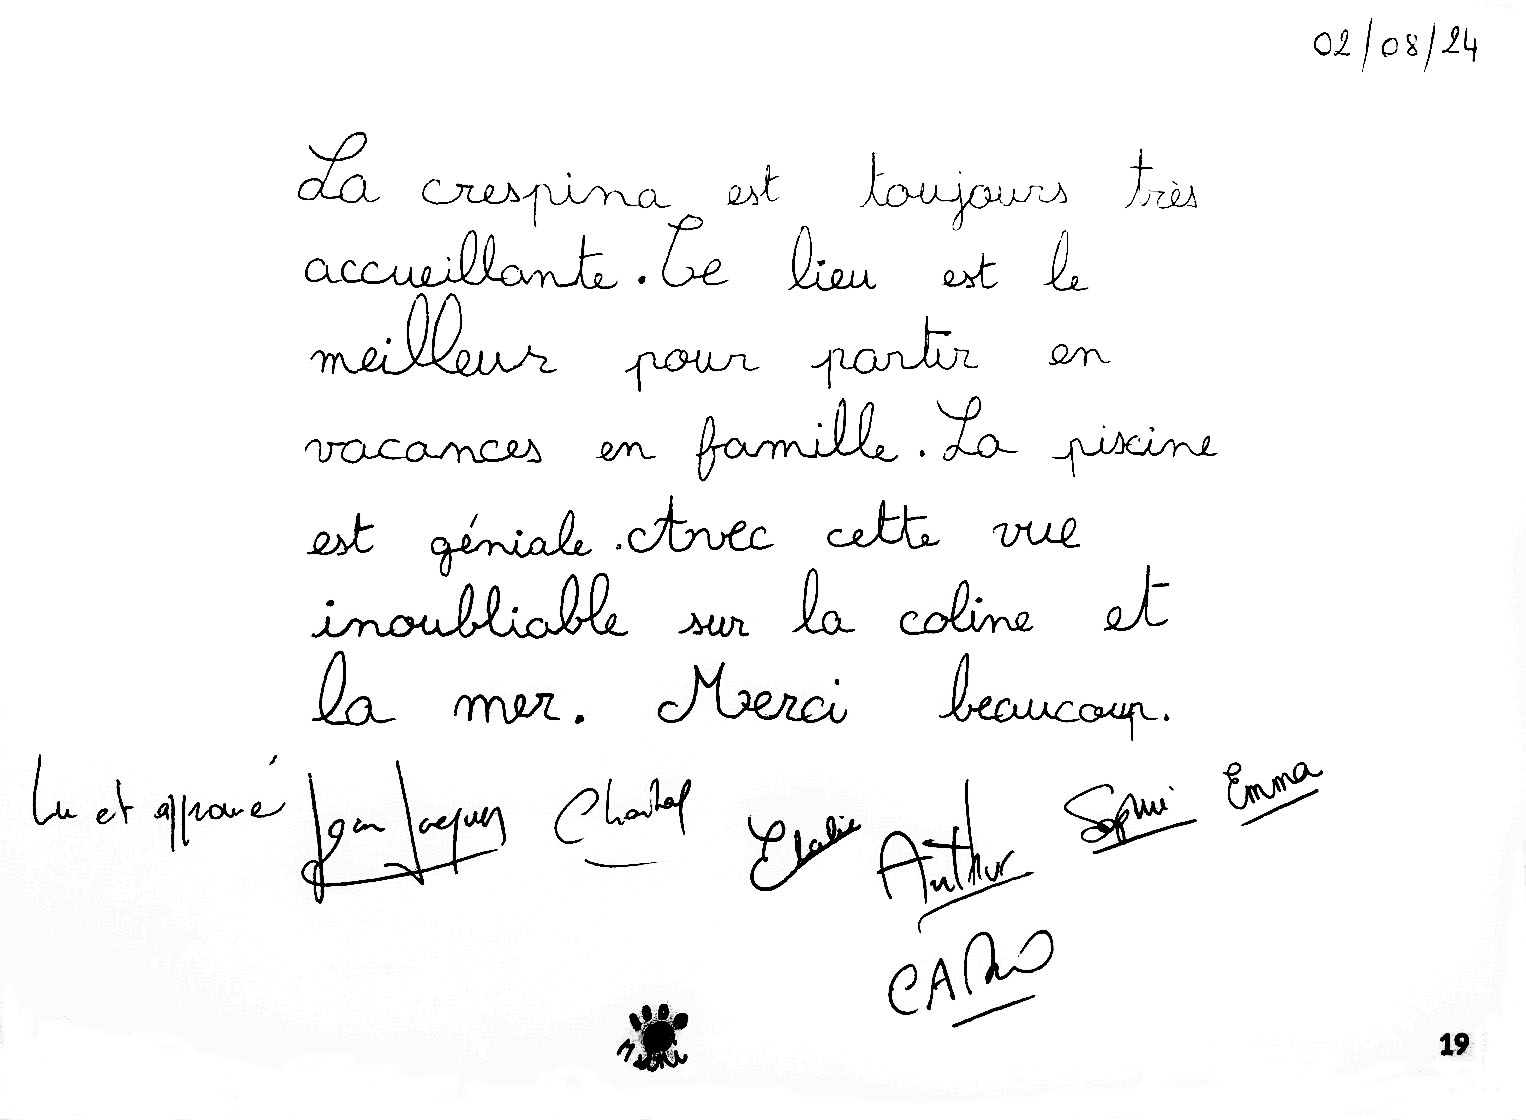 02/08/24
La crespina est toujours très
accueillante. Ce lieu est le
meilleur pour partir en
vacances en famille. La piscine
est géniale. Avec cette vue
inoubliable sur la coline et
la mer. Merci beaucoup.
Lu et approuvé Jean Jacques Chantal Elalie Arthur Sophie Emma
CARO
19